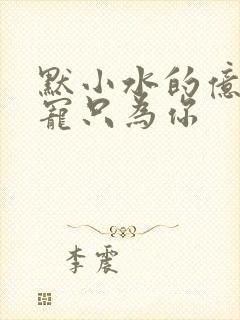 默小水的億
寵只為你
李震